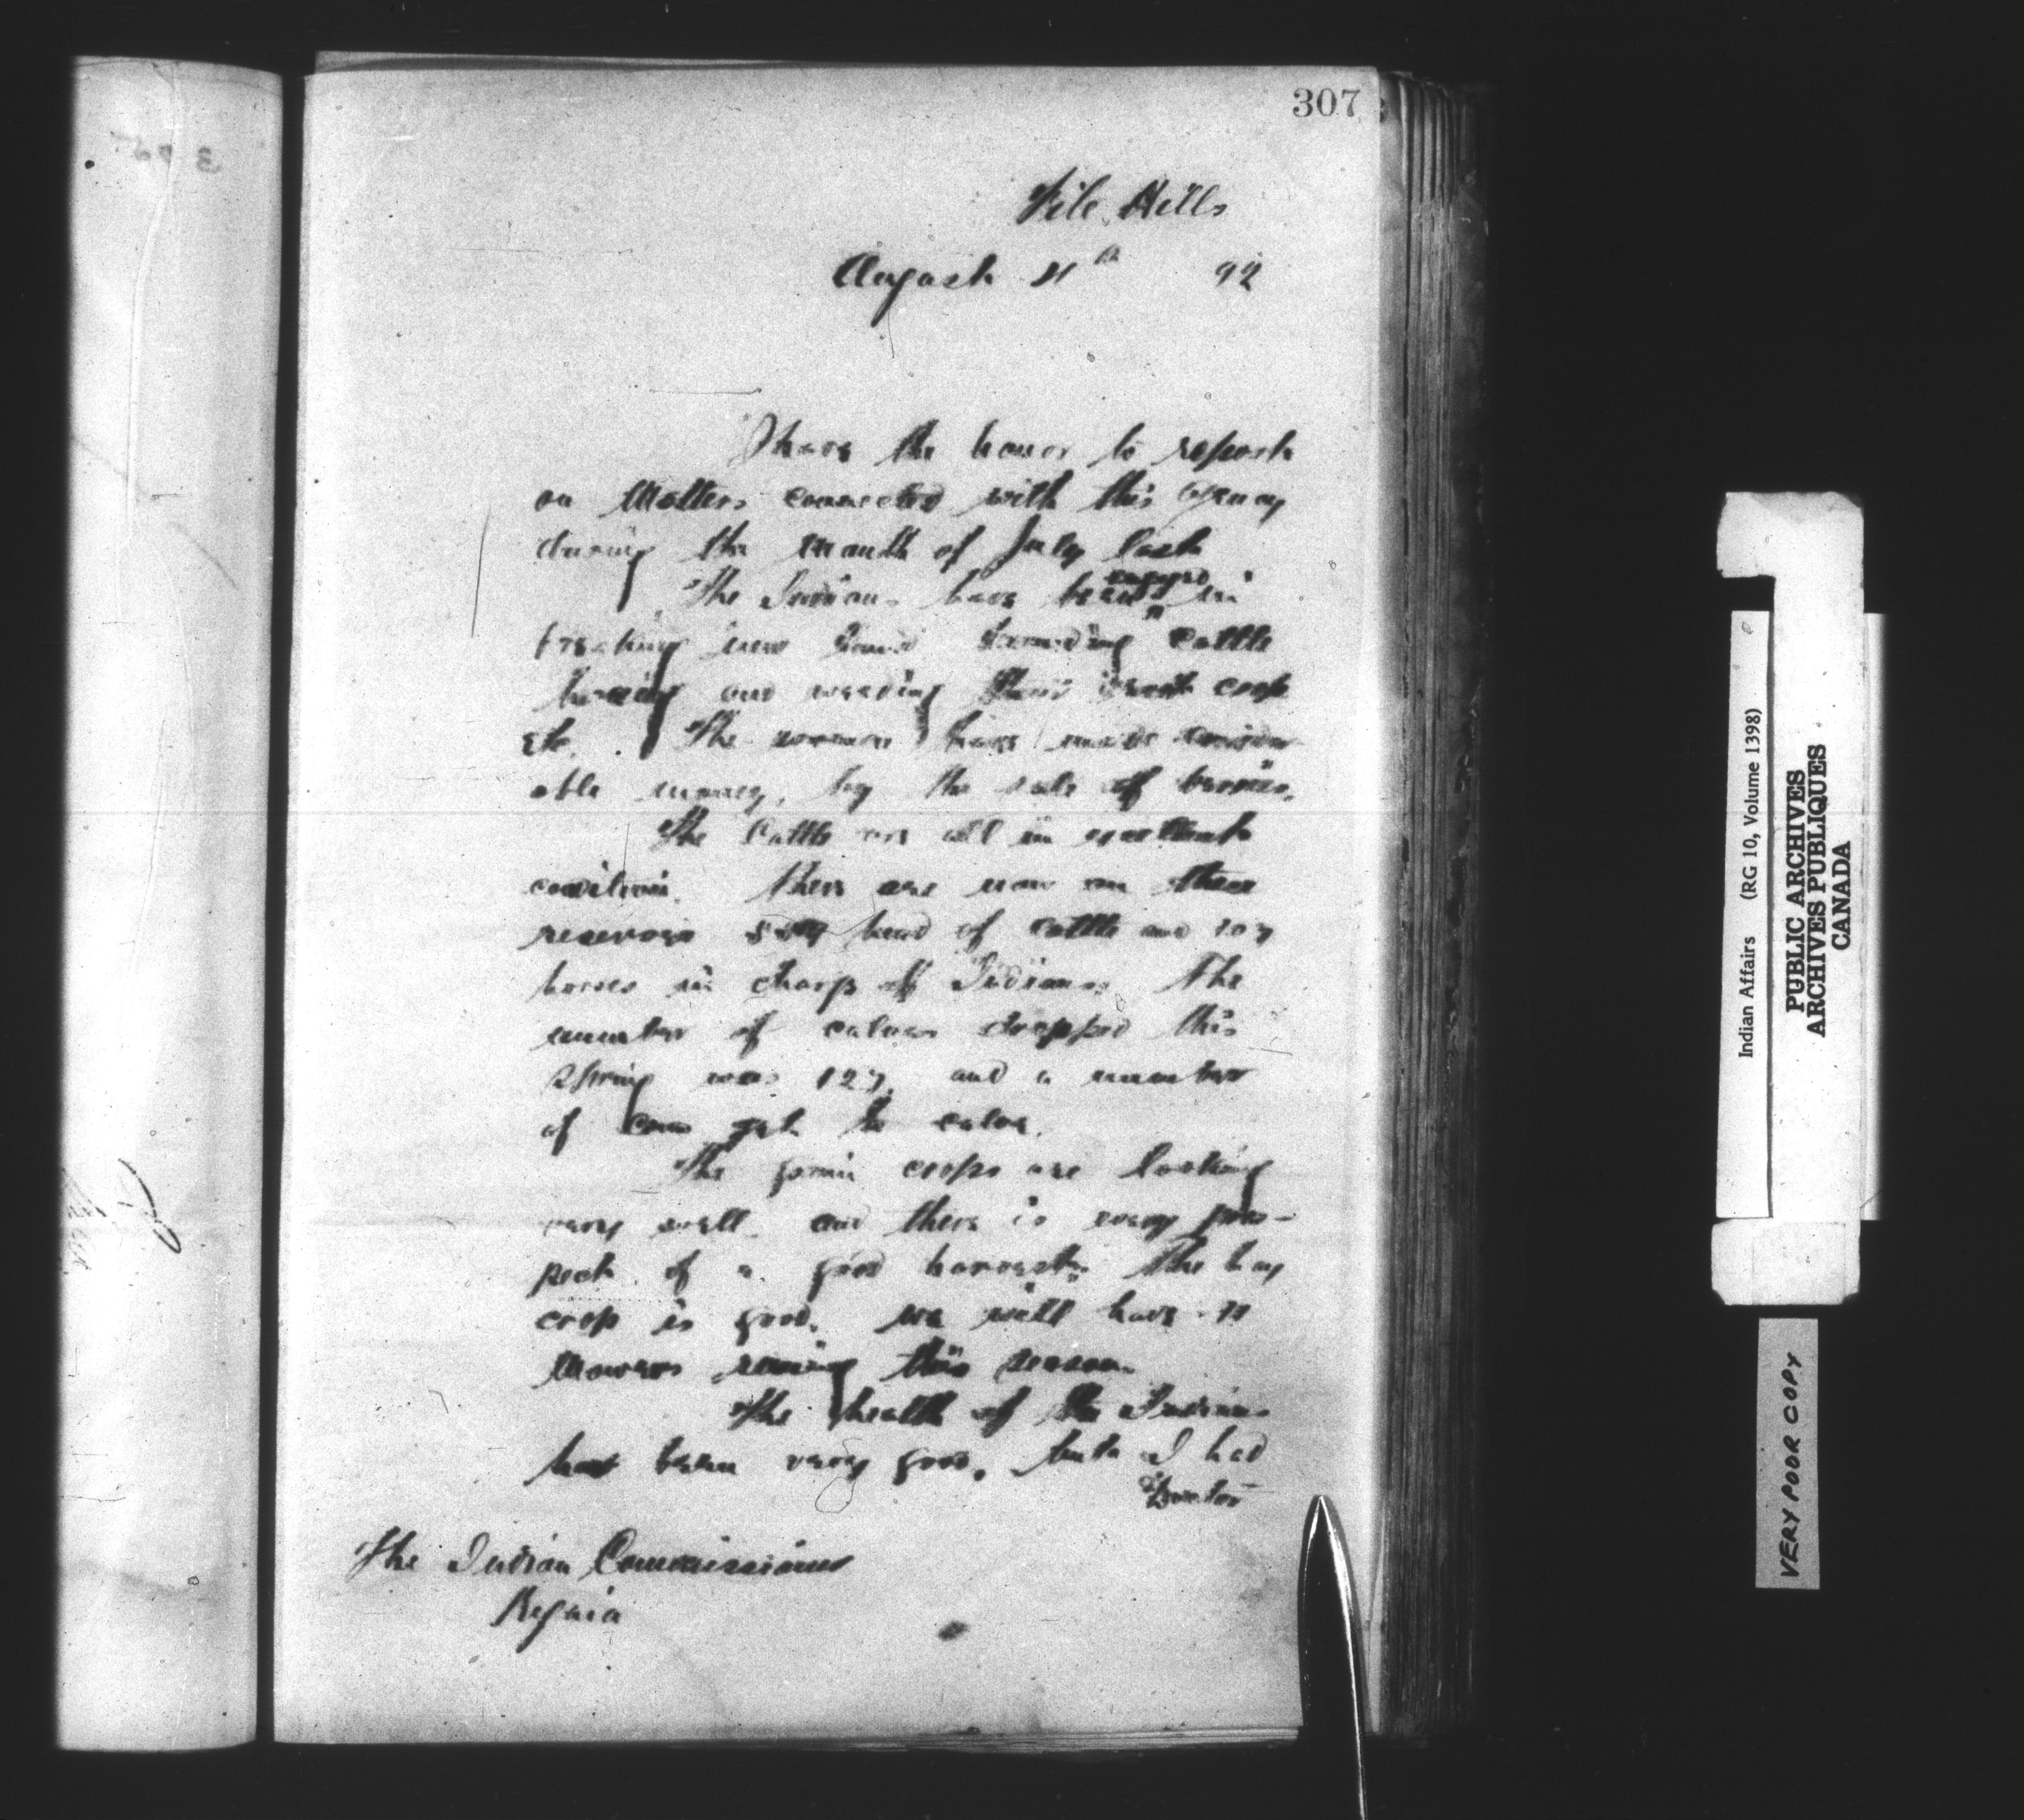 307
File Hills
August 4th 92
I have the honor to report
on Matters connected with this Agency
during the month of July last
The Indians have been engaged in
breaking new land tending cattle
hoeing and weeding their root crop
etc. The women have made consider
able money, by the sale of berries.
The Cattle are all in excellent
condition. There are now on these
reserves head of cattle and 107
horses in charge of Indians. The
number of calves dropped this
Spring was 127, and a number
of cows yet to calve.
The grain crops are looking
very well. and there is every pros-
pect of a good harvest. The hay
crop is good. we will have 11
Mowers running this season.
The health of the Indians
has been very good, but I had
Doctor
The Indian Commissioner
Regina
Indian Affairs (RG 10, Volume 1398)
PUBLIC ARCHIVES
ARCHIVES PUBLIQUES
CANADA
VERY POOR COPY